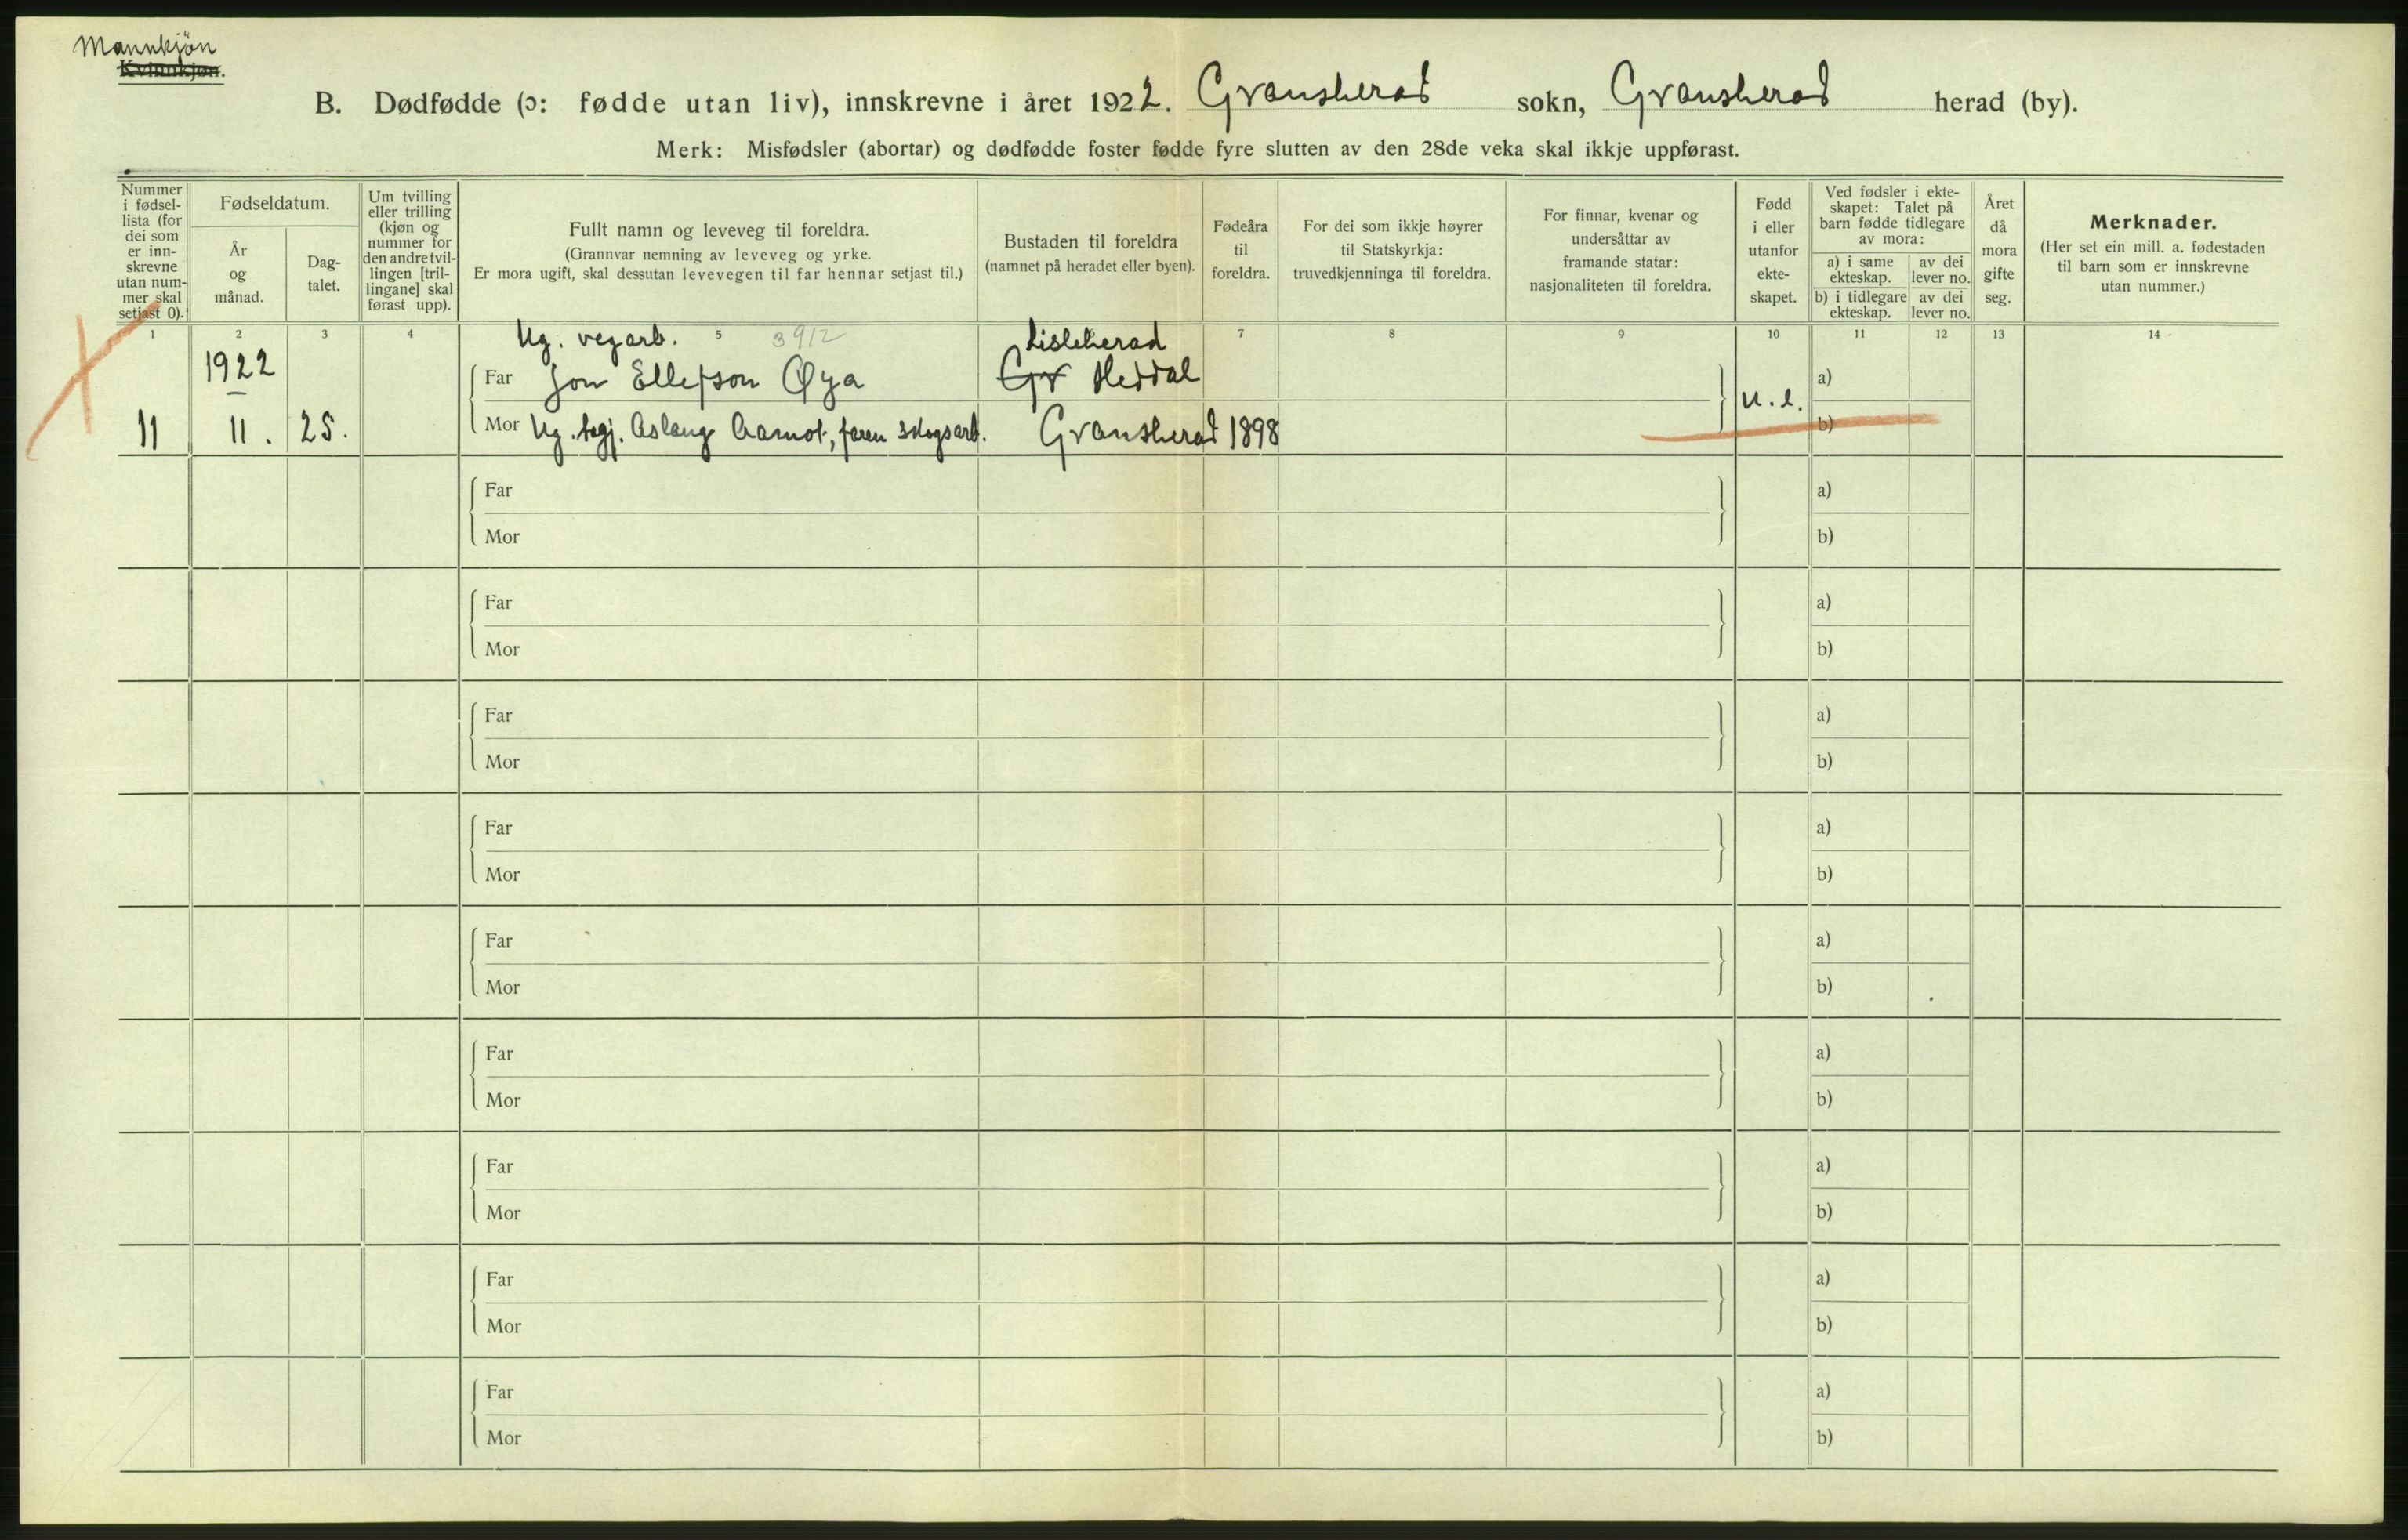 Mannkjön
Kvinnkjøn.
B. Dødfødde (ɔ: fødde utan liv), innskrevne i året 1922. Gransherad sokn, Gransherad herad (by).
Merk: Misfødsler (abortar) og dødfødde foster fødde fyre slutten av den 28de veka skal ikkje uppførast.
Nummer i fødsel-lista (for dei som er inn-skrevne utan num-mer skal setjast 0).
Fødseldatum.
År og månad.
Dag-talet.
Um tvilling eller trilling (kjøn og nummer for den andre tvil-lingen [tril-lingane] skal førast upp).
Fullt namn og leveveg til foreldra.
(Grannvar nemning av leveveg og yrke.
Er mora ugift, skal dessutan levevegen til far hennar setjast til.)
Bustaden til foreldra
(namnet på heradet eller byen).
Fødeåra til foreldra.
For dei som ikkje høyrer til Statskyrkja: truvedkjenninga til foreldra.
For finnar, kvenar og undersåttar av framande statar: nasjonaliteten til foreldra.
Fødd i eller utanfor ekte-skapet.
Ved fødsler i ekte-skapet: Talet på barn fødde tidlegare av mora:
a) i same ekteskap.
av dei lever no.
b) i tidlegare ekteskap.
av dei lever no.
Året då mora gifte seg.
Merknader.
(Her set ein mill. a. fødestaden til barn som er innskrevne utan nummer.)
1 2 3 4 5 6 7 8 9 10 11 12 13 14
Ug. vegarb. 3912 Lisleherad
1922 Far Jon Ellefson Øya Gr Heddal u. e. a)
11 11. 25. Mor Ug. Aslaug Aamot, faren skogsarb. Gransherad 1898 b)
Far a)
Mor b)
Far a)
Mor b)
Far a)
Mor b)
Far a)
Mor b)
Far a)
Mor b)
Far a)
Mor b)
Far a)
Mor b)
Far a)
Mor b)
Far a)
Mor b)